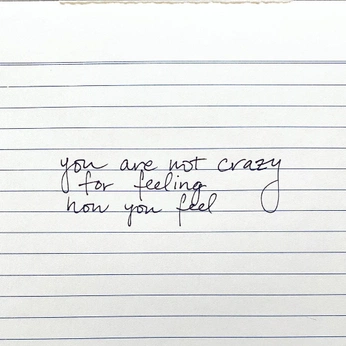 you are not crazy
for feeling
how you feel